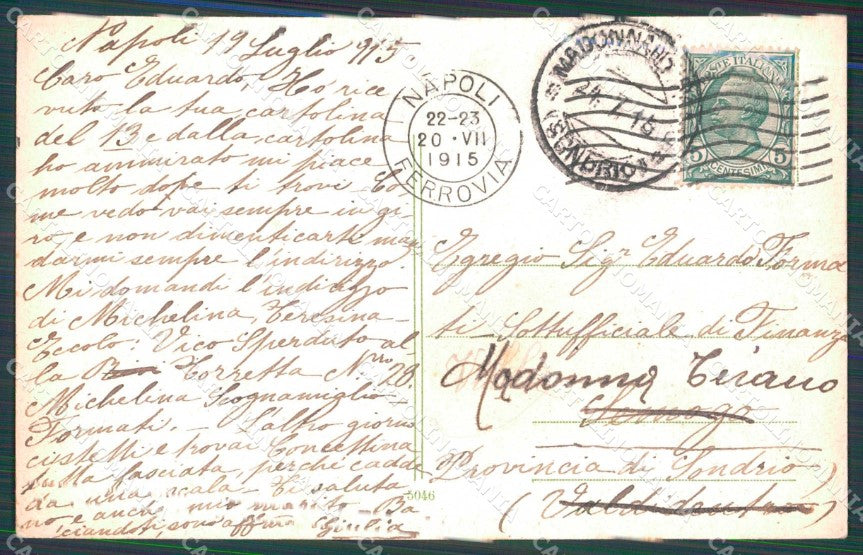 Napoli 19 Luglio 915
Caro Eduardo, Hó rice
vuto la tua cartolina
del 13 e dalla cartolina
ho ammirato mi piace
molto dope ti trovi Co
me vedo vai sempre in gi
ro e non dimenticarte man
darmi sempre l'indirizzo.
Mi domandi l'indirizzo
di Michelina, Teresina
Eccolo: Vico Sperduto al
la Torretta Nro 28.
Michelina Scognamiglio
Formati. - L'altro giorno
ci stetti e trovai Concettina
tutta fasciata, perchè cadde
da una scala. Ti saluta
no e anche mio marito. Ba
ciandoti, sono affma Giulia
NAPOLI
22-23
20 · VII
1915
FERROVIA
MADONNA DI
24.7.15
(SONDRIO)
POSTE ITALIANE
5 CENTESIMI 5
Egregio Sigr Eduardo Forma
ti Sottufficiale di Finanza
Madonna Tirano
Provincia di Sondrio
(Valdidentro)
5046
CARTOMANIA